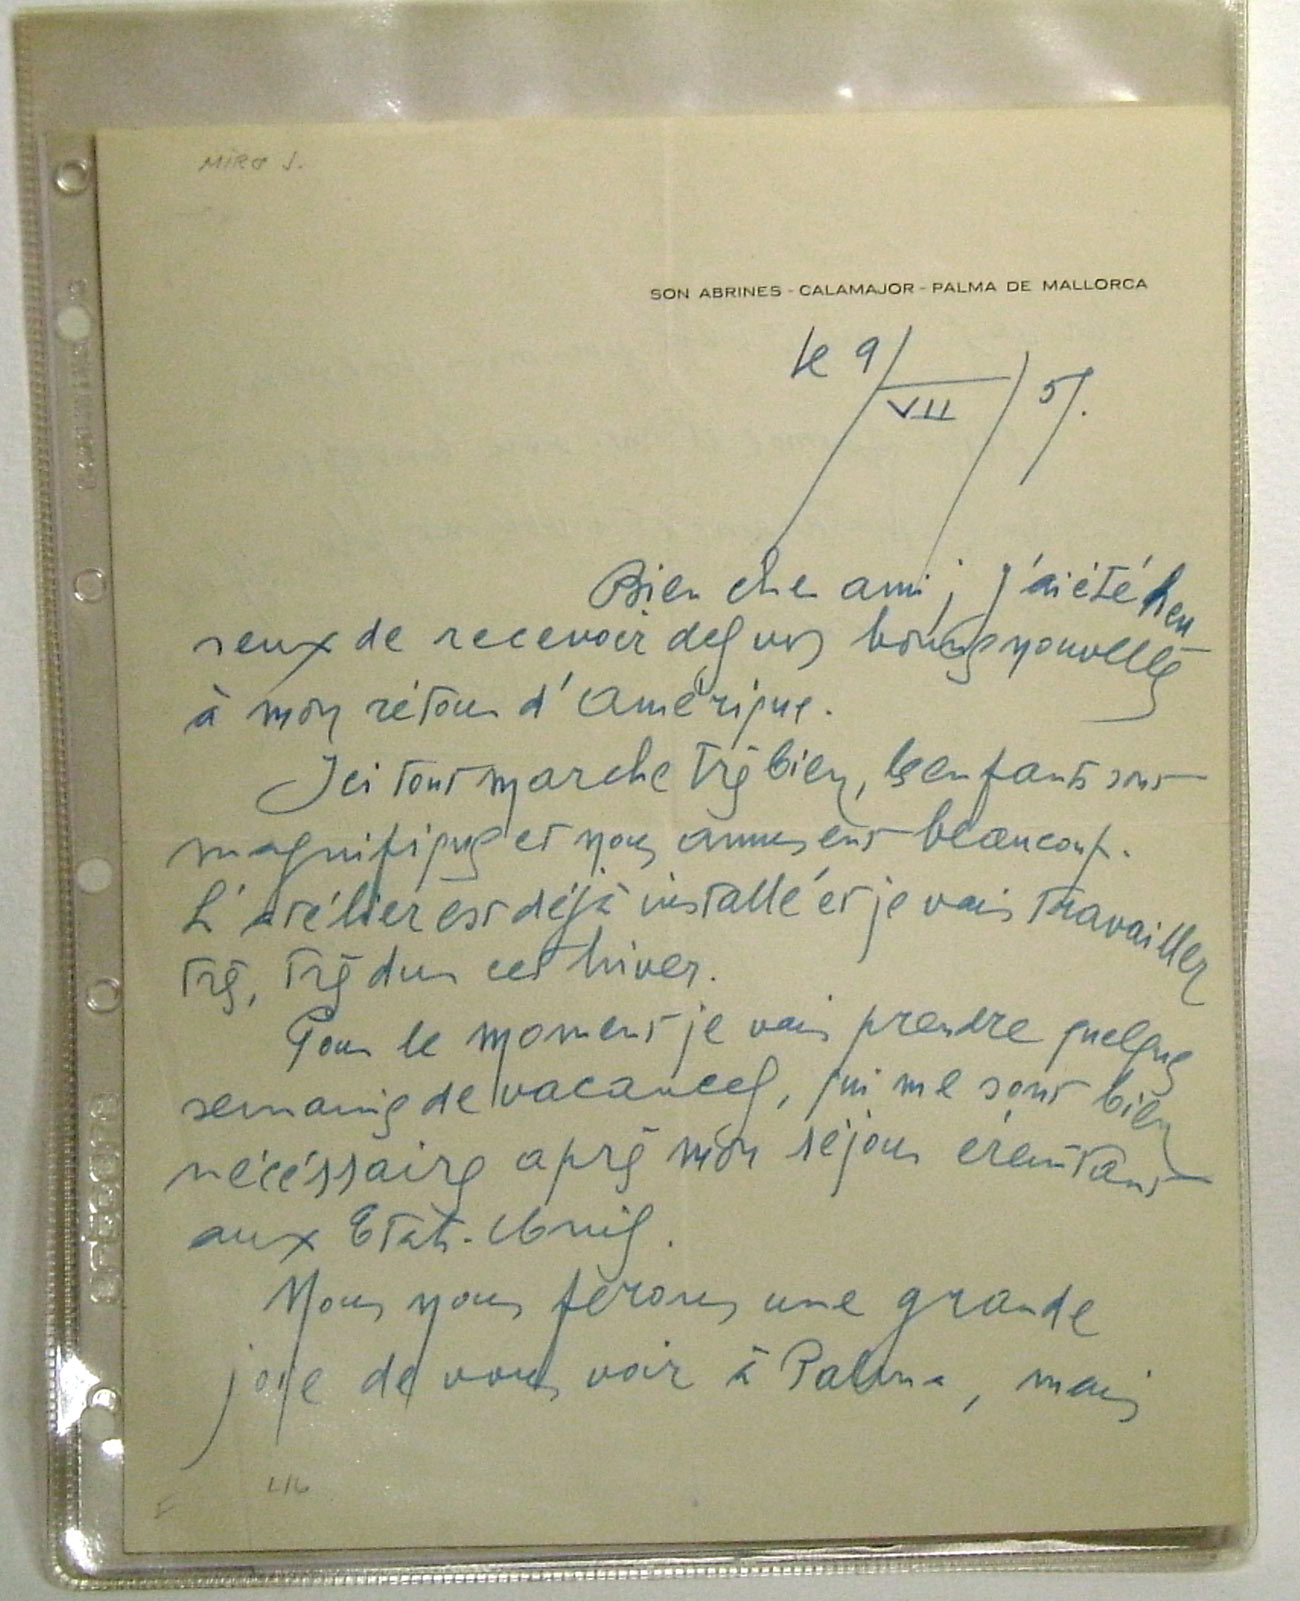 MIRO J.
SON ABRINES - CALAMAJOR - PALMA DE MALLORCA
le 9/VII/5
Bien cher ami, j'ai été heu
reux de recevoir des vos bonnes nouvelles
à mon rétour d'Amérique.
Ici tout marche très bien, les enfants sont
magnifiques et nous amusent beaucoup.
L'atélier est déjà installé et je vais travailler
très, très dur cet hiver.
Pour le moment je vais prendre quelques
semaines de vacances, qui me sont bien
nécéssaires après mon séjour éreintant
aux Etats-Unis.
Nous nous ferons une grande
joie de vous voir à Palma, mais
L16